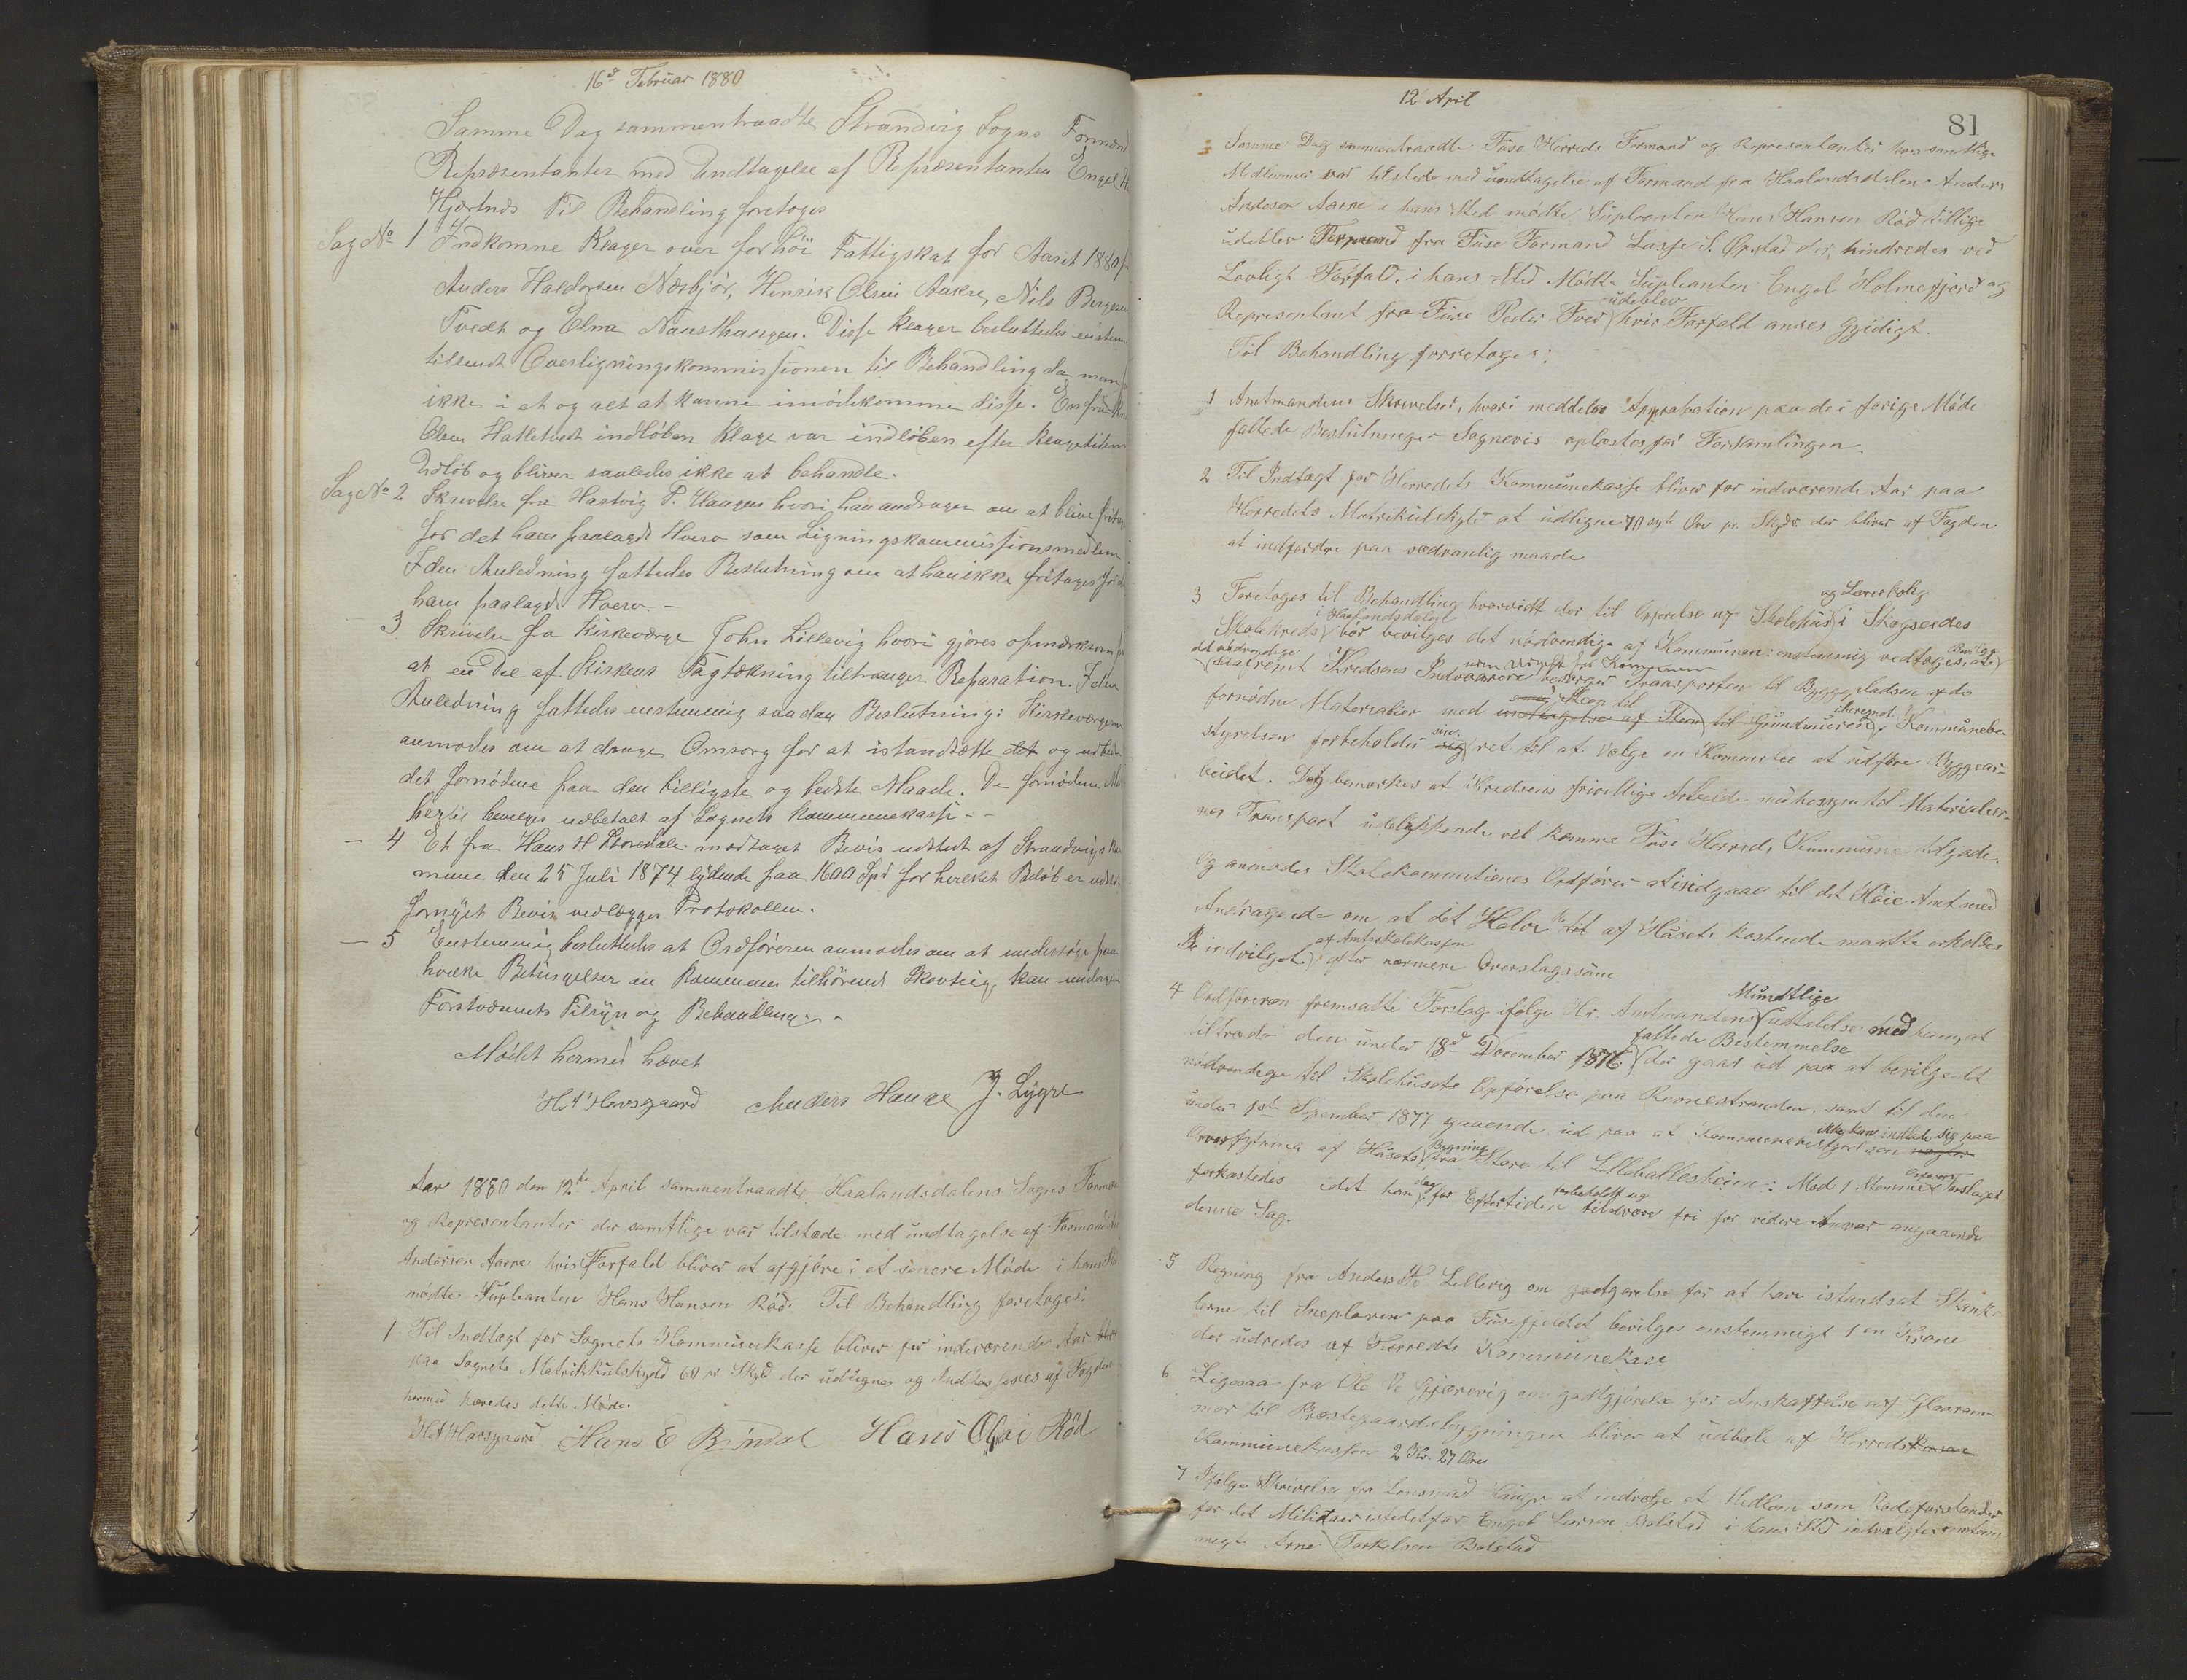 16de Februar 1880
Samme Dag sammentraadte Strandvig Sogns Formænd
Repræsentanter med Undtagelse af Repræsentanten Engel H
Hjertnæs Til Behandling foretoges
Sag No 1 Indkomne Klager over for höi Fattigskat for Aaret 1880 f
Anders Haldorsen Nærbjör, Henrik Olsen Aakre, Nils Börgesen
Tvedt og Elna Naasthaugen. Disse Klager besluttedes enstem
tilsendt Overligningskommissionen til Behandling da man
ikke i et og alt at kunne imödekomme disse. En fra
Olsen Hatletvedt indlöben Klage var indlöben efter Klagetiden
Udlöb og bliver saaledes ikke at behandle.
Sag No 2 Skrivelse fra Hartvig P. Haugen hvori han andrager om at blive frita
for det ham paalagde Hverv som Ligningskommissionsmedlem
I den Anledning fattedes Beslutning om at han ikke fritages for d
ham paalagde Hverv. -
3 Skrivelse fra Kirkeværge John Lillevig hvori gjöres opmærksom
at en Del af Kirkens Tagtækning tiltrænger Reparation. I den
Anledning fattedes enstemmig saadan Beslutning: Kirkeværgen
anmodes om at drage Omsorg for at istandsætte det og udbedre
det fornödne paa den billigste og bedste Maade. De fornödne Mi
hertil bevilges udbetalt af Sognets Kommunekasse - -
- 4 Et fra Hans H modtaget Bevis udstedt af Strandvigs Kom
mune den 25 Juli 1874 lydende paa 1600 Spd for hvilket Belöb er udsted
fornyet Bevis vedlægges Protokollen.
- 5 Enstemmig besluttedes at Ordföreren anmodes om at undersöge paa
hvilke Betingelser en Kommunen tilhörende Skovteig kan undergives
Forstvæsenets Tilsyn og Behandling. -
Mödet hermed hævet
H A Havsgaard Anders Hauge J. Lygre
Aar 1880 den 12te April sammentraadte Haalandsdalens Sogns Formænd
og Representanter der samtlige var tilstæde med undtagelse af Formand
Andersen Aarre hvis Forfald bliver at afgjöre i et senere Möde i hans St
mödte Supleanten Hans Hansen Röd. Til Behandling foretoges:
1 Til Indtægt for Sognets Kommunekasse bliver for indeværende Aar
paa Sognets Matrikkulskyld 60 pr Skyld der udlignes og Indkasseres af Fogden
hermed hævedes dette Möde.
H A Havsgaard Hans E Bröndal Hans Olai Röd
12 April
81
Samme Dag sammentraadte Füse Herreds Formænd og Representanter hvor samtlige
Medlemmer var tilstede med undtagelse af Formand fra Haalandsdalen Anders
Andersen Aarre i hans Sted mödte Supleanten Hans Hansen Röd tillige
udeblev Formand fra Füse Formand Lasse S. Opstad der hindredes ved
Lovligt Forfald. i hans Sted Mödte Supleanten Engel Holmefjord og
udeblev
Representant fra Füse Peder Tver hvis Forfald ansees Gyldigt.
Til Behandling forretoges:
1 Amtmandens Skrivelser, hvori meddeles Approbation paa de i forige Möde
fattede Beslutninger Sognevis oplæstes for Forsamlingen.
2 Til Indtægt for Herredets Kommunekasse bliver for indeværende Aar paa
Herredets Matrikulskyld at udligne 70 syti Öre pr. Skylr. der bliver af Fogden
at indfordre paa sedvanlig maade
og Lærerbolig
3 Foretoges til Behandling hvorvidt der til Opförelse af Skolehus i Skogseides
i Haalandsdalen
Skolekreds bör bevilges det nödvendige af Kommunen: enstemmig vedtoges at
det nödvendige
saafremt Kredsens Indvaanere uden Udgift for Kommunen besörger Transporten til Byggepladsen af de
fornödne Materialier med undtagelse af Sten til Grundmuren. Kommunebe-
styrelsen forbeholder sig ret til at vælge en Kommitee at udföre Byggear-
beidet. Dog bemærkes at Kredsens frivillige Arbeide med hensyn til Materialier-
nes Transport udelukkende vil komme Füse Herreds Kommune tilgode.
Og anmodes Skolekommisjonens Ordförer at indgaae til det Höie Amt med
Andragende om at det Halve af Husets kostende maatte erholdes
af Amtsskolekassen
indvilget efter nærmere Overslagssum
Mundtlige
4 Ordföreren fremsatte Forslag ifölge Hr. Amtmandens udtalelse med ham, at
fattede Bestemmelse
tiltræde den under 18de December 1876 der gaar ud paa at bevilge det
nödvendige til Skolehusets Opförelse paa Reonestranden, samt til den
under 1ste September 1877 gaaende ud paa at Kommunebestyrelsen ikke kan indlade sig paa
Overflytning af Husets Bygning fra Store til Lilleballesheim: Mod 1 Stemme Forslaget
forkastedes idet han dog for Eftertiden forbeholdt sig være fri for videre Ansvar angaaende
denne Sag.
5 Regning fra Anders H. Lillevig om godtgjörelse for at have istandsat Skænk-
lerne til Sneploven paa Füsefjeldet bevilges enstemmigt 1 en Krone
der udredes af Herredets Kommunekasse
6 Ligesaa fra Ole Gjærevig om godtgjörelse for Anskaffelse af Glasram-
mer til Præstegaardsbygningen bliver at udbetale af Herreds
Kommunekassen 2 Kr. 27 Öre
7 Ifölge Skrivelse fra Lensmand Hauge at indvælge et Medlem som Rodeforstander
for det Militære istedetfor Engel Larsen Bolstad i hans Sted indvalgtes enstem
migt Arne Torkelsen Bolstad